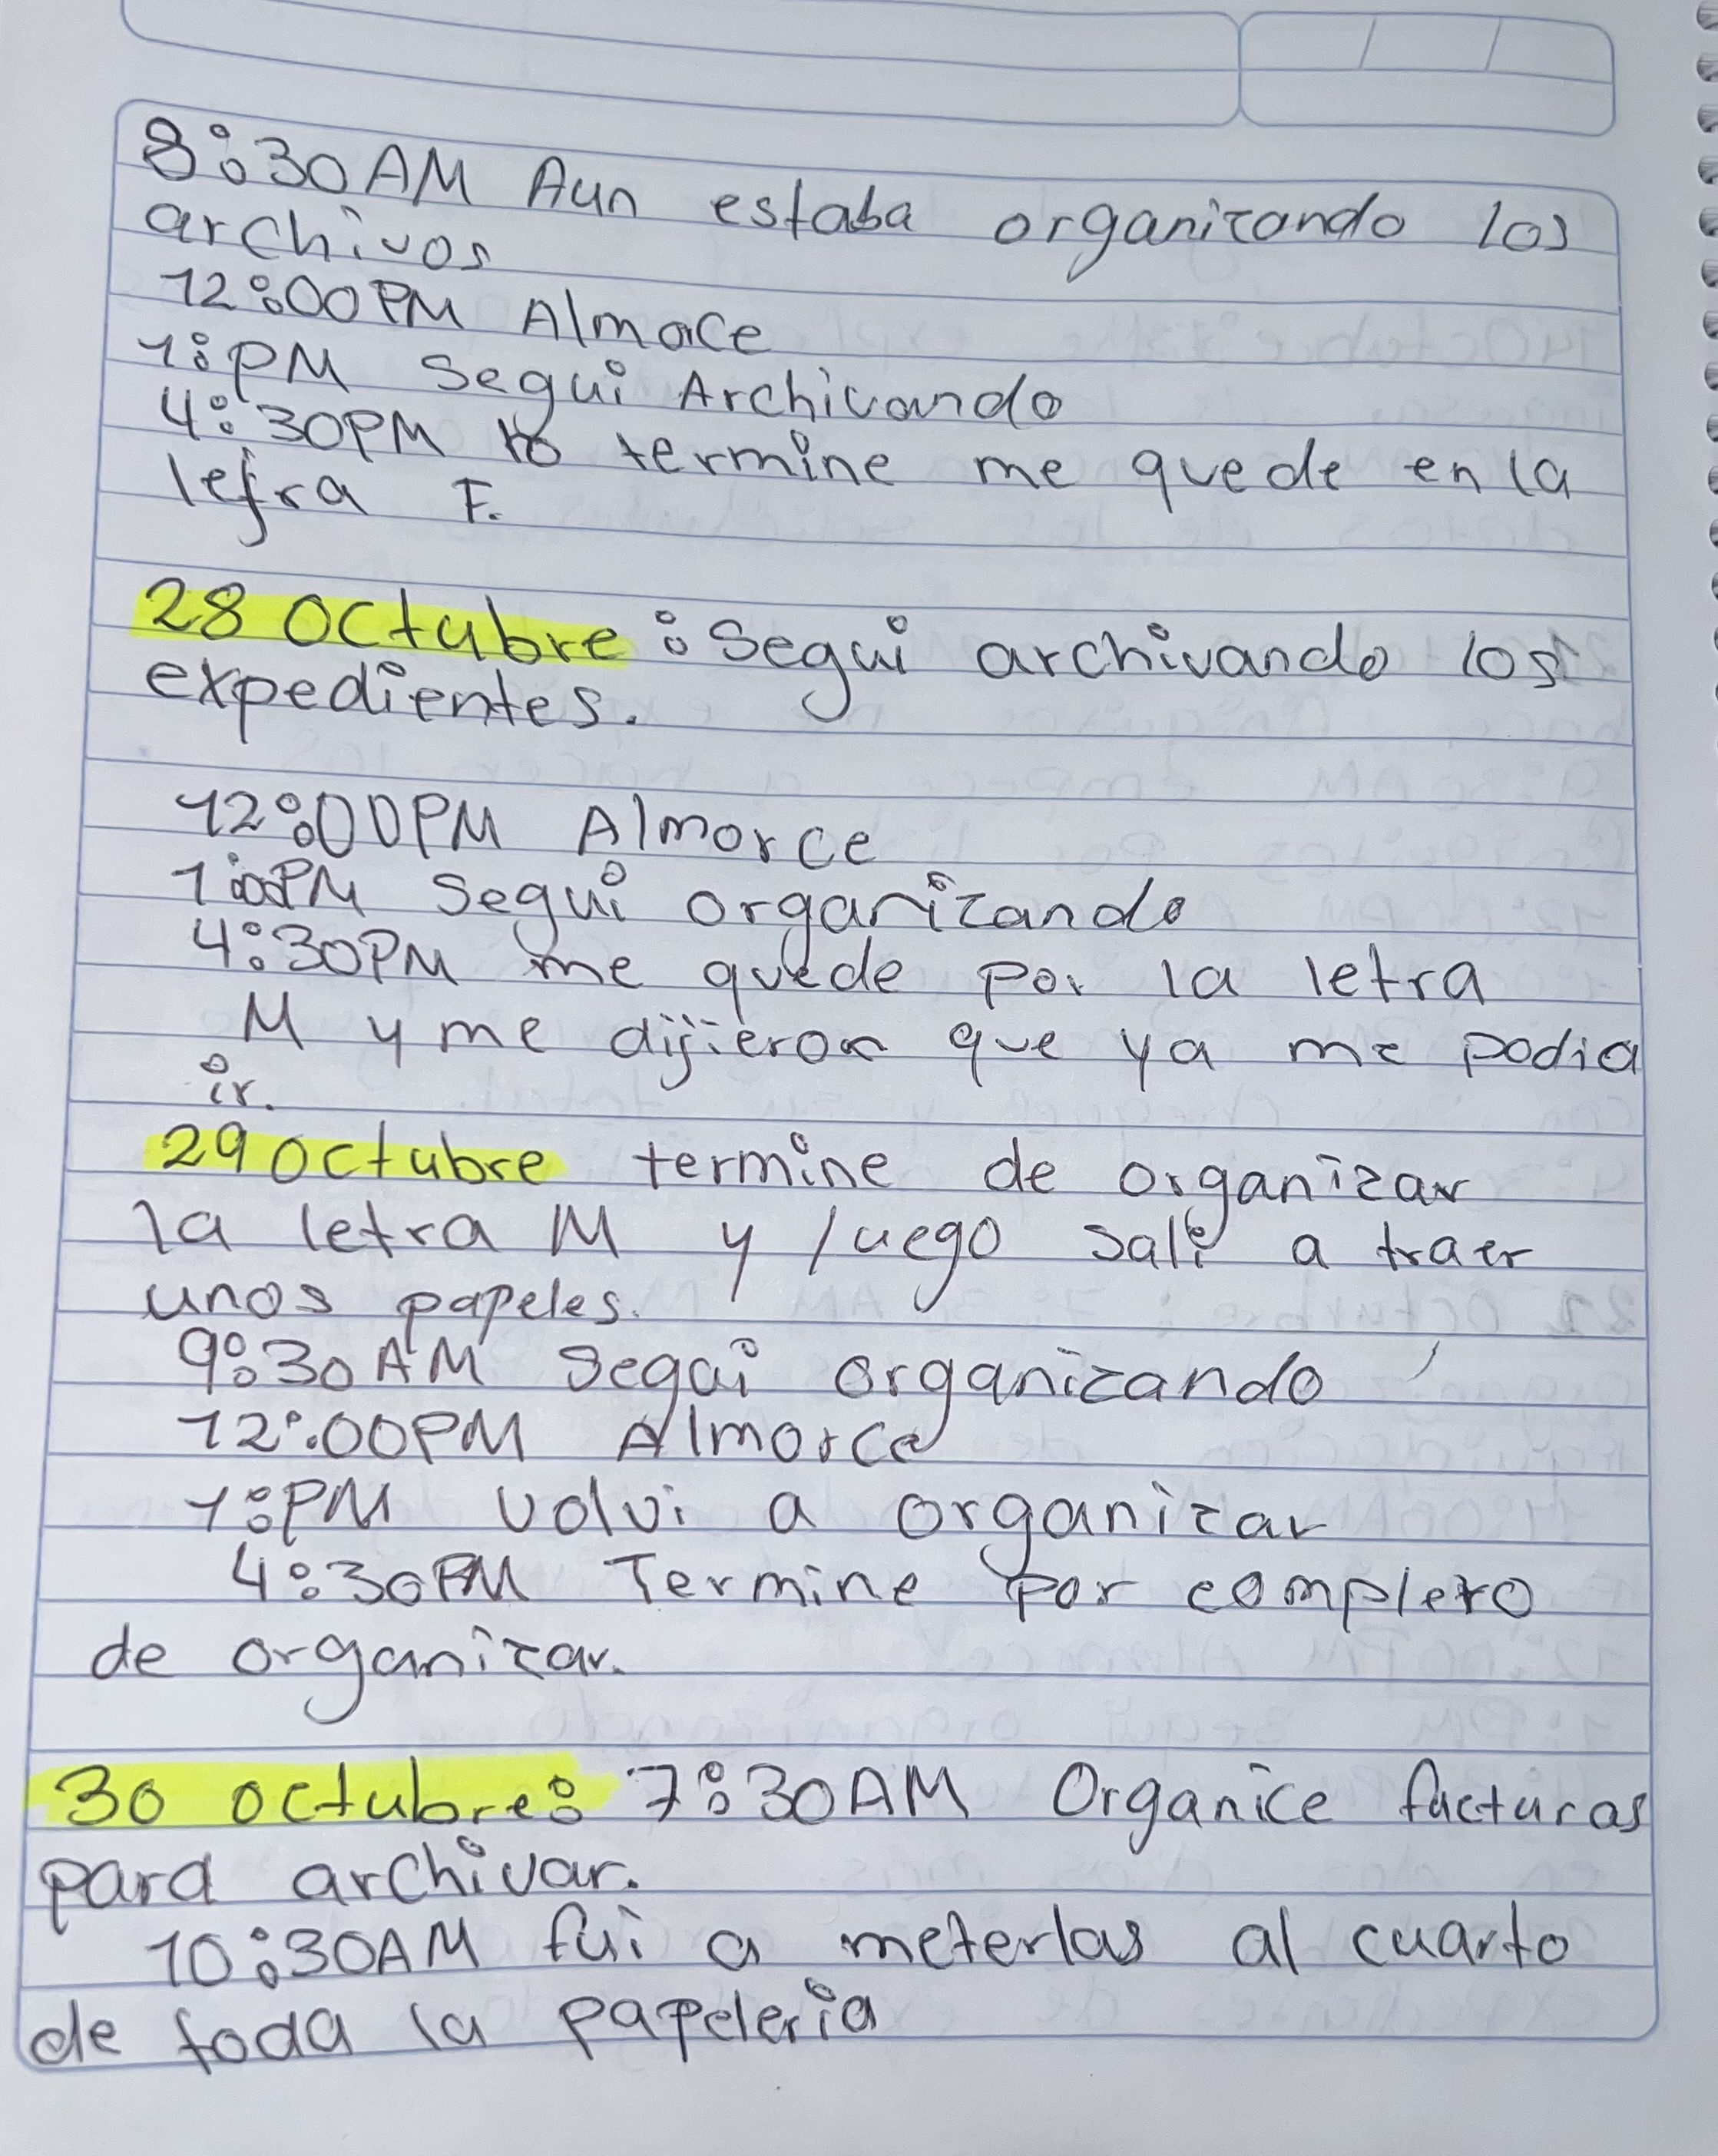 8:30AM Aun estaba organizando los
archivos
12:00PM Almorce
1:PM Segui Archivando
4:30PM no termine me quede en la
letra F.
28 Octubre: Segui archivando los
expedientes.
12:00PM Almorce
1:00PM Segui organizando
4:30PM me quede por la letra
M y me dijieron que ya me podia
ir.
29 octubre termine de organizar
la letra M y luego sali a traer
unos papeles.
9:30AM Segui organizando
12:00PM Almorce
1:PM volvi a organizar
4:30PM Termine por completo
de organizar.
30 octubre: 7:30AM Organice facturas
para archivar.
10:30AM fui a meterlas al cuarto
de toda la papeleria